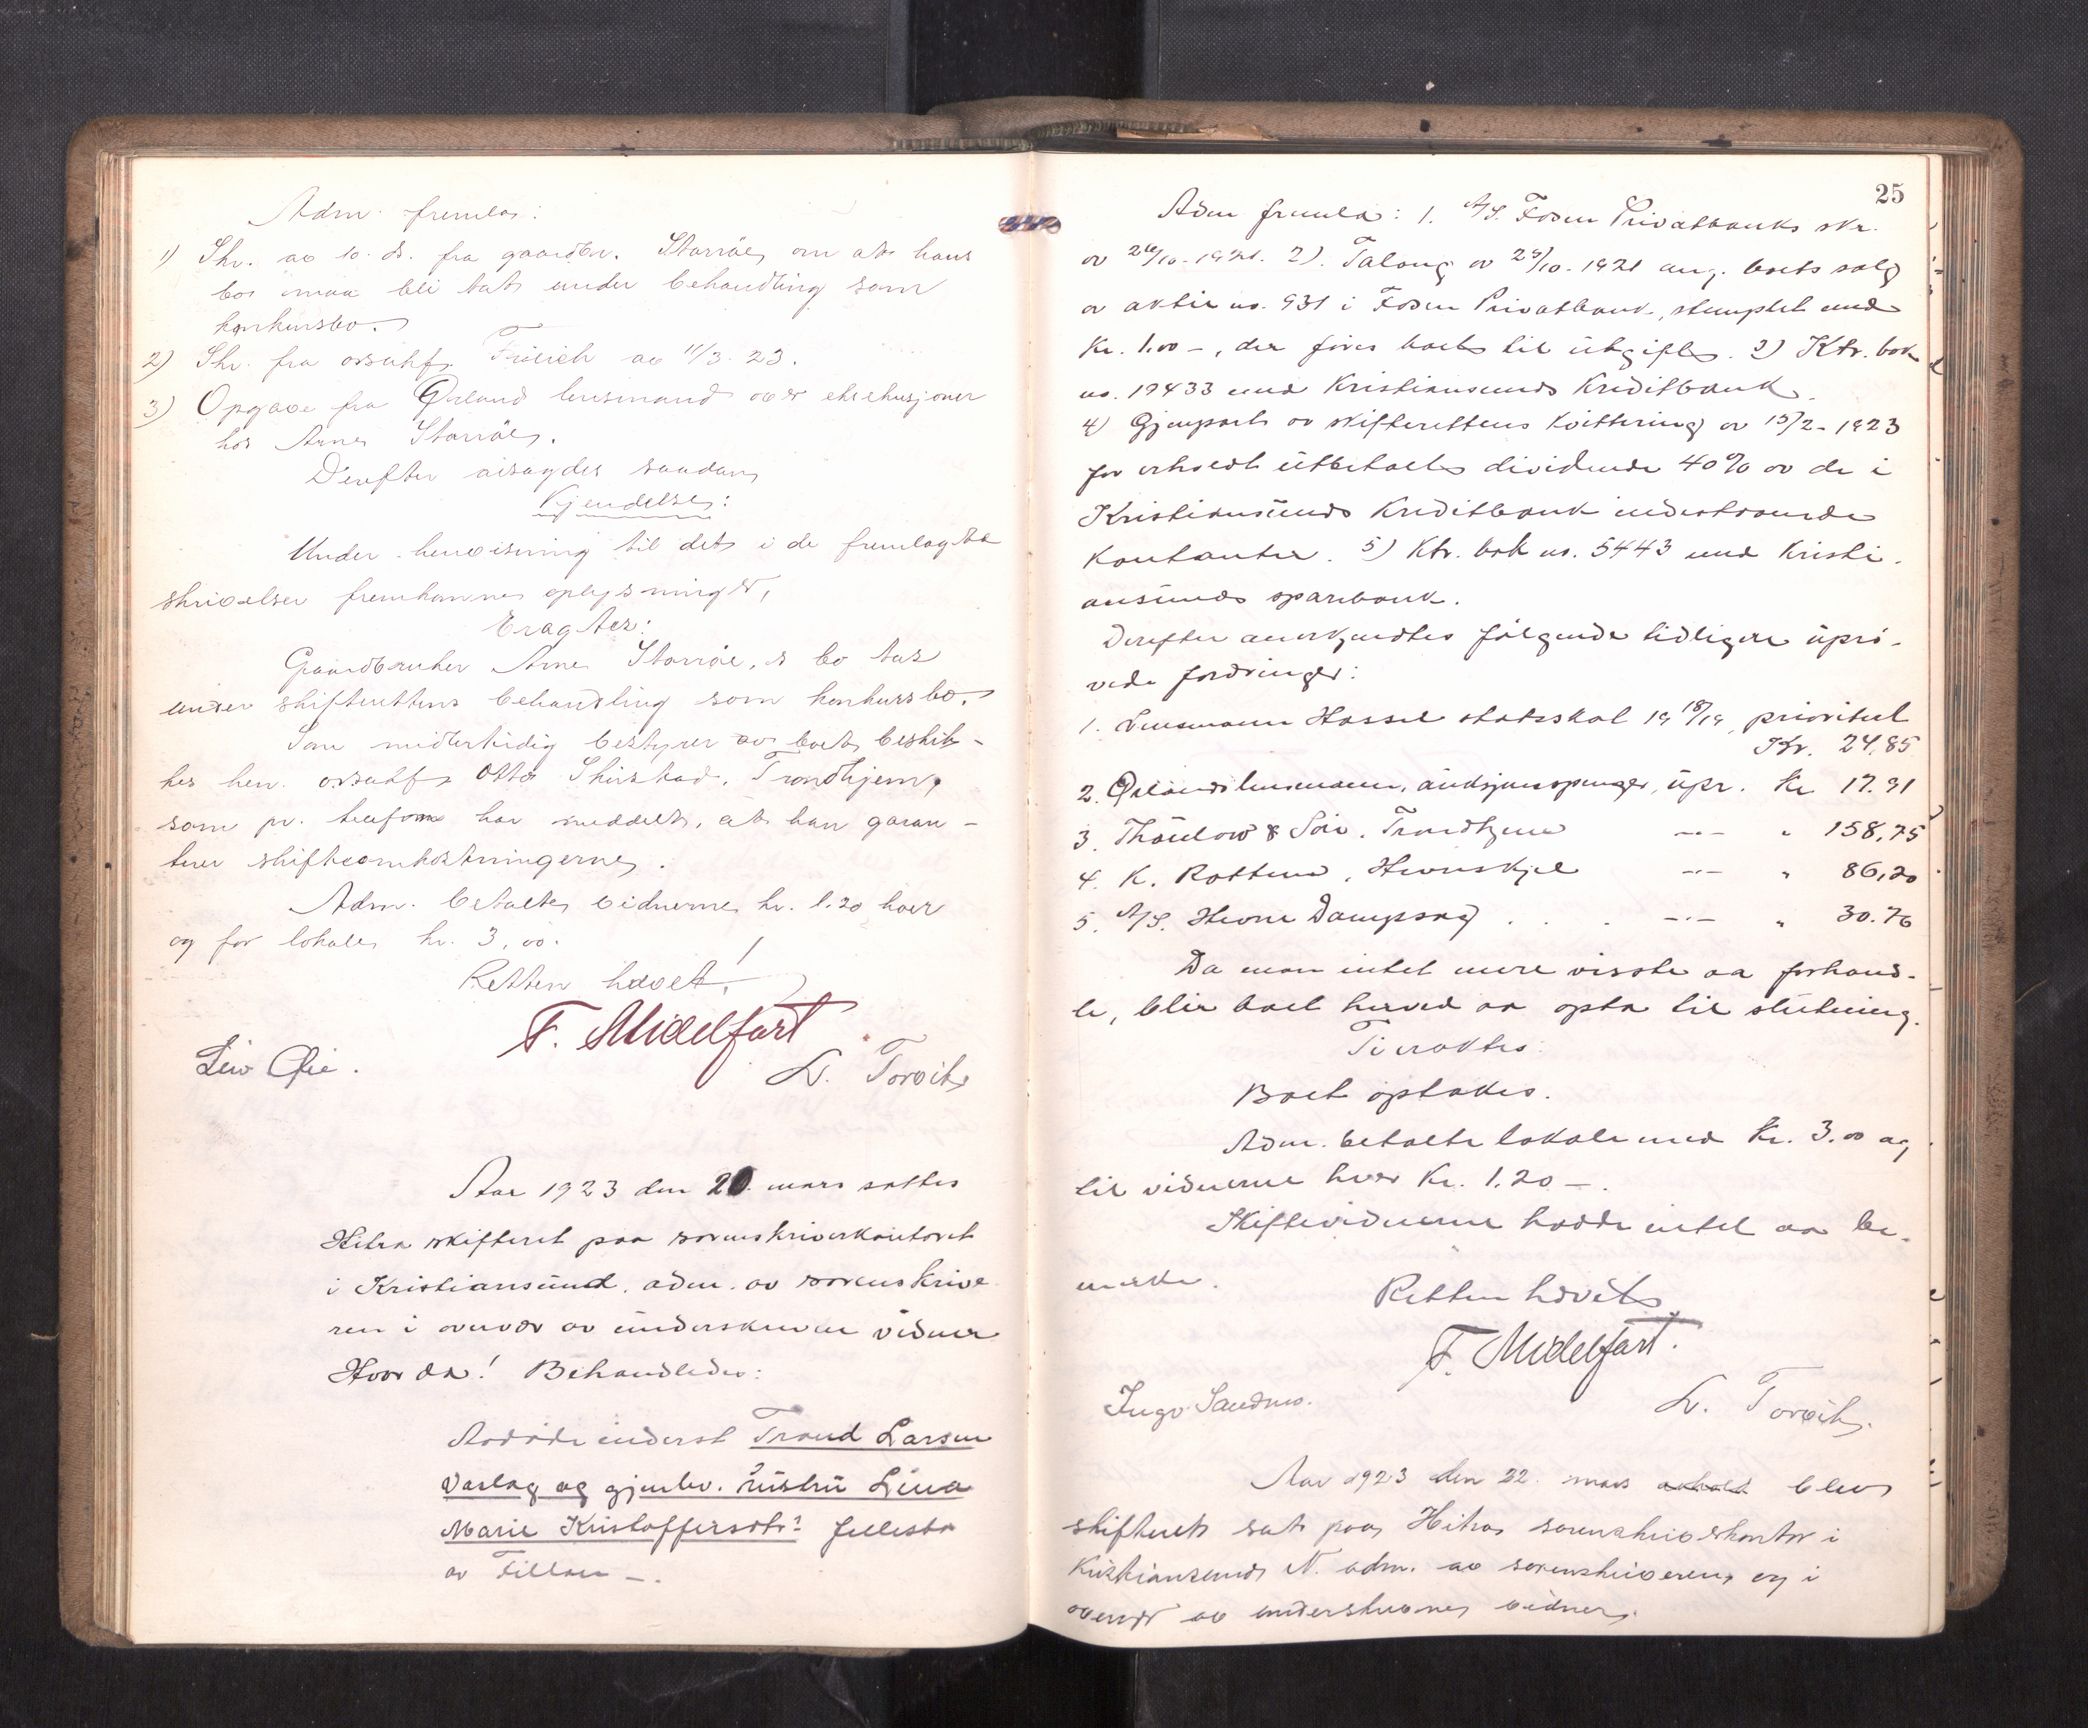 Adm. fremla:
1) Skr. av 10. ds. fra gaardbr. Storröe, om at hans
bo maa bli tat under behandling som
konkursbo.
2) Skr. fra orsakf. Frölich av 11/3. 23.
3) Opgave fra Ørland lensmand over eksekusjoner
hos Arne Storröe.
Derefter avsagdes saadan
Kjendelse:
Under henvisning til det i de fremlagte
skrivelser fremkomne oplysninger,
Eragtes:
Gaardbruker Arne Storröe,s bo tas
under skifterettens behandling som konkursbo.
Som midlertidig bestyrer av boet beskik-
kes herr orsakf. Otto Skirstad, Trondhjem,
som pr. telefon har meddelt, at han garan-
terer skifteomkostningerne.
Adm. betalte vidnerne kr. 1.20 hver
og for lokale kr. 3,00.
Retten hævet!
F. Midelfart
Liv Øie.
L. Torvik
Aar 1923 den 20. mars sattes
Hitra skifteret paa sorenskriverkontoret
i Kristiansund, adm. av sorenskrive
ren i overvær av underskrevne vidner
Hvor da! Behandledes:
Avdøde inderst Trond Larsen
Vaslag og gjenlev. hustru Lina
Marie Kristoffersdtr? fellesbo
av Fillan —.
25
Adm fremla: 1. A/S. Fosen Privatbanks skr.
av 26/10-1921. 2). Talong av 25/10-1921 ang. boets salg
av aktie no. 931 i Fosen Privatbank, stemplet med
Kr. 1.00 —, der føres boet til utgift. 3) Ktr. bok
no. 19433 med Kristiansunds Kreditbank.
4) Gjenpart av skifterettens kvittering av 15/2-1923
for erholdt utbetalt dividende 40% av de i
Kristiansunds Kreditbank indestaaende
kontanter. 5) Ktr. bok no. 5443 med Kristi
ansunds sparebank.
Derefter anerkjendtes følgende tidligere uprø-
vede fordringer:
1. Lensmann Hassel statsskat 19 18/19, prioritert
Kr. 24,85
2. Ørlands lensmann, auksjonspenger, upr. Kr 17.91
3. Thaulow & Søn, Trondhjem —"— " 158,75
4. K. Rottem, Hevnskjel —"— " 86,20
5. A/S. Hevne Dampsag . . . —"— " 30.76
Da man intet mere visste aa forhand-
le, blir boet herved aa opta til slutning.
Ti eraktes:
Boet optakes.
Adm. betalte lokale med Kr. 3.00 og
til vidnerne hver Kr. 1.20 —.
Skiftevidnerne hadde intet aa be-
merke.
Retten hævet
F. Midelfart.
Inga Sandmo.
L. Torvik.
Aar 1923 den 22. mars avholdt blev
skifteret sat paa Hitra sorenskriverkontor i
Kristiansund N. adm. av sorenskriveren og i
overvær av underskrevne vidner.